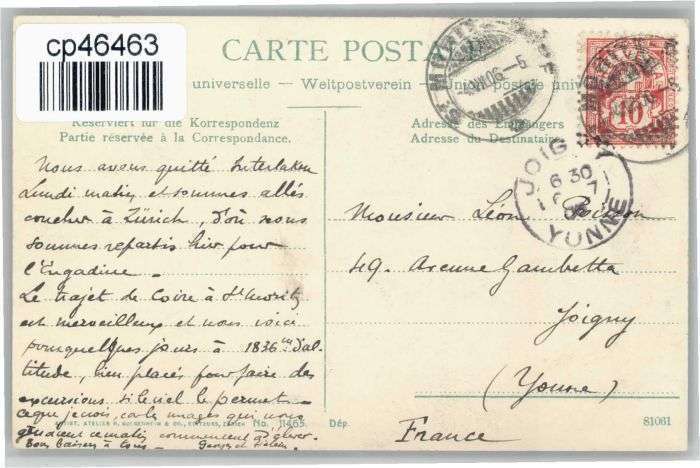 cp46463
CARTE POSTALE
universelle — Weltpostverein — Union postale universelle
Reserviert für die Korrespondenz
Partie réservée à la Correspondance.
Adresse des Empfängers
Adresse du Destinataire
ST. MORITZ
VII 06-5
10
JOIGNY
6 30
7
06
YONNE
Nous avons quitté Interlaken
Lundi matin et sommes allés
coucher à Zürich, d'où nous
sommes repartis hier pour
l'Engadine —
Le trajet de Coire à St Moritz
est merveilleux et nous voici
pour quelques jours à 1836m d'al-
titude, bien placés pour faire des
excursions si le ciel le permet —
ce que je vois, car les nuages qui nous
gardaient ce matin commencent à s'élever.
Bons baisers à tous Georges et
Monsieur Léon
49. Avenue Gambetta
Joigny
(Yonne)
France
& CO., EDITEURS, ZÜRICH
No. 11465.
Dép.
81061